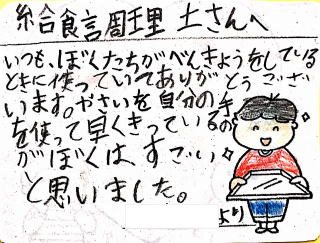 給食調理士さんへ
いつも、ぼくたちがべんきょうをしている
ときに使っていていてありがとうござい
います。やさいを自分の手
を使って早くきっているの
がぼくは、すごい
と思いました。
より